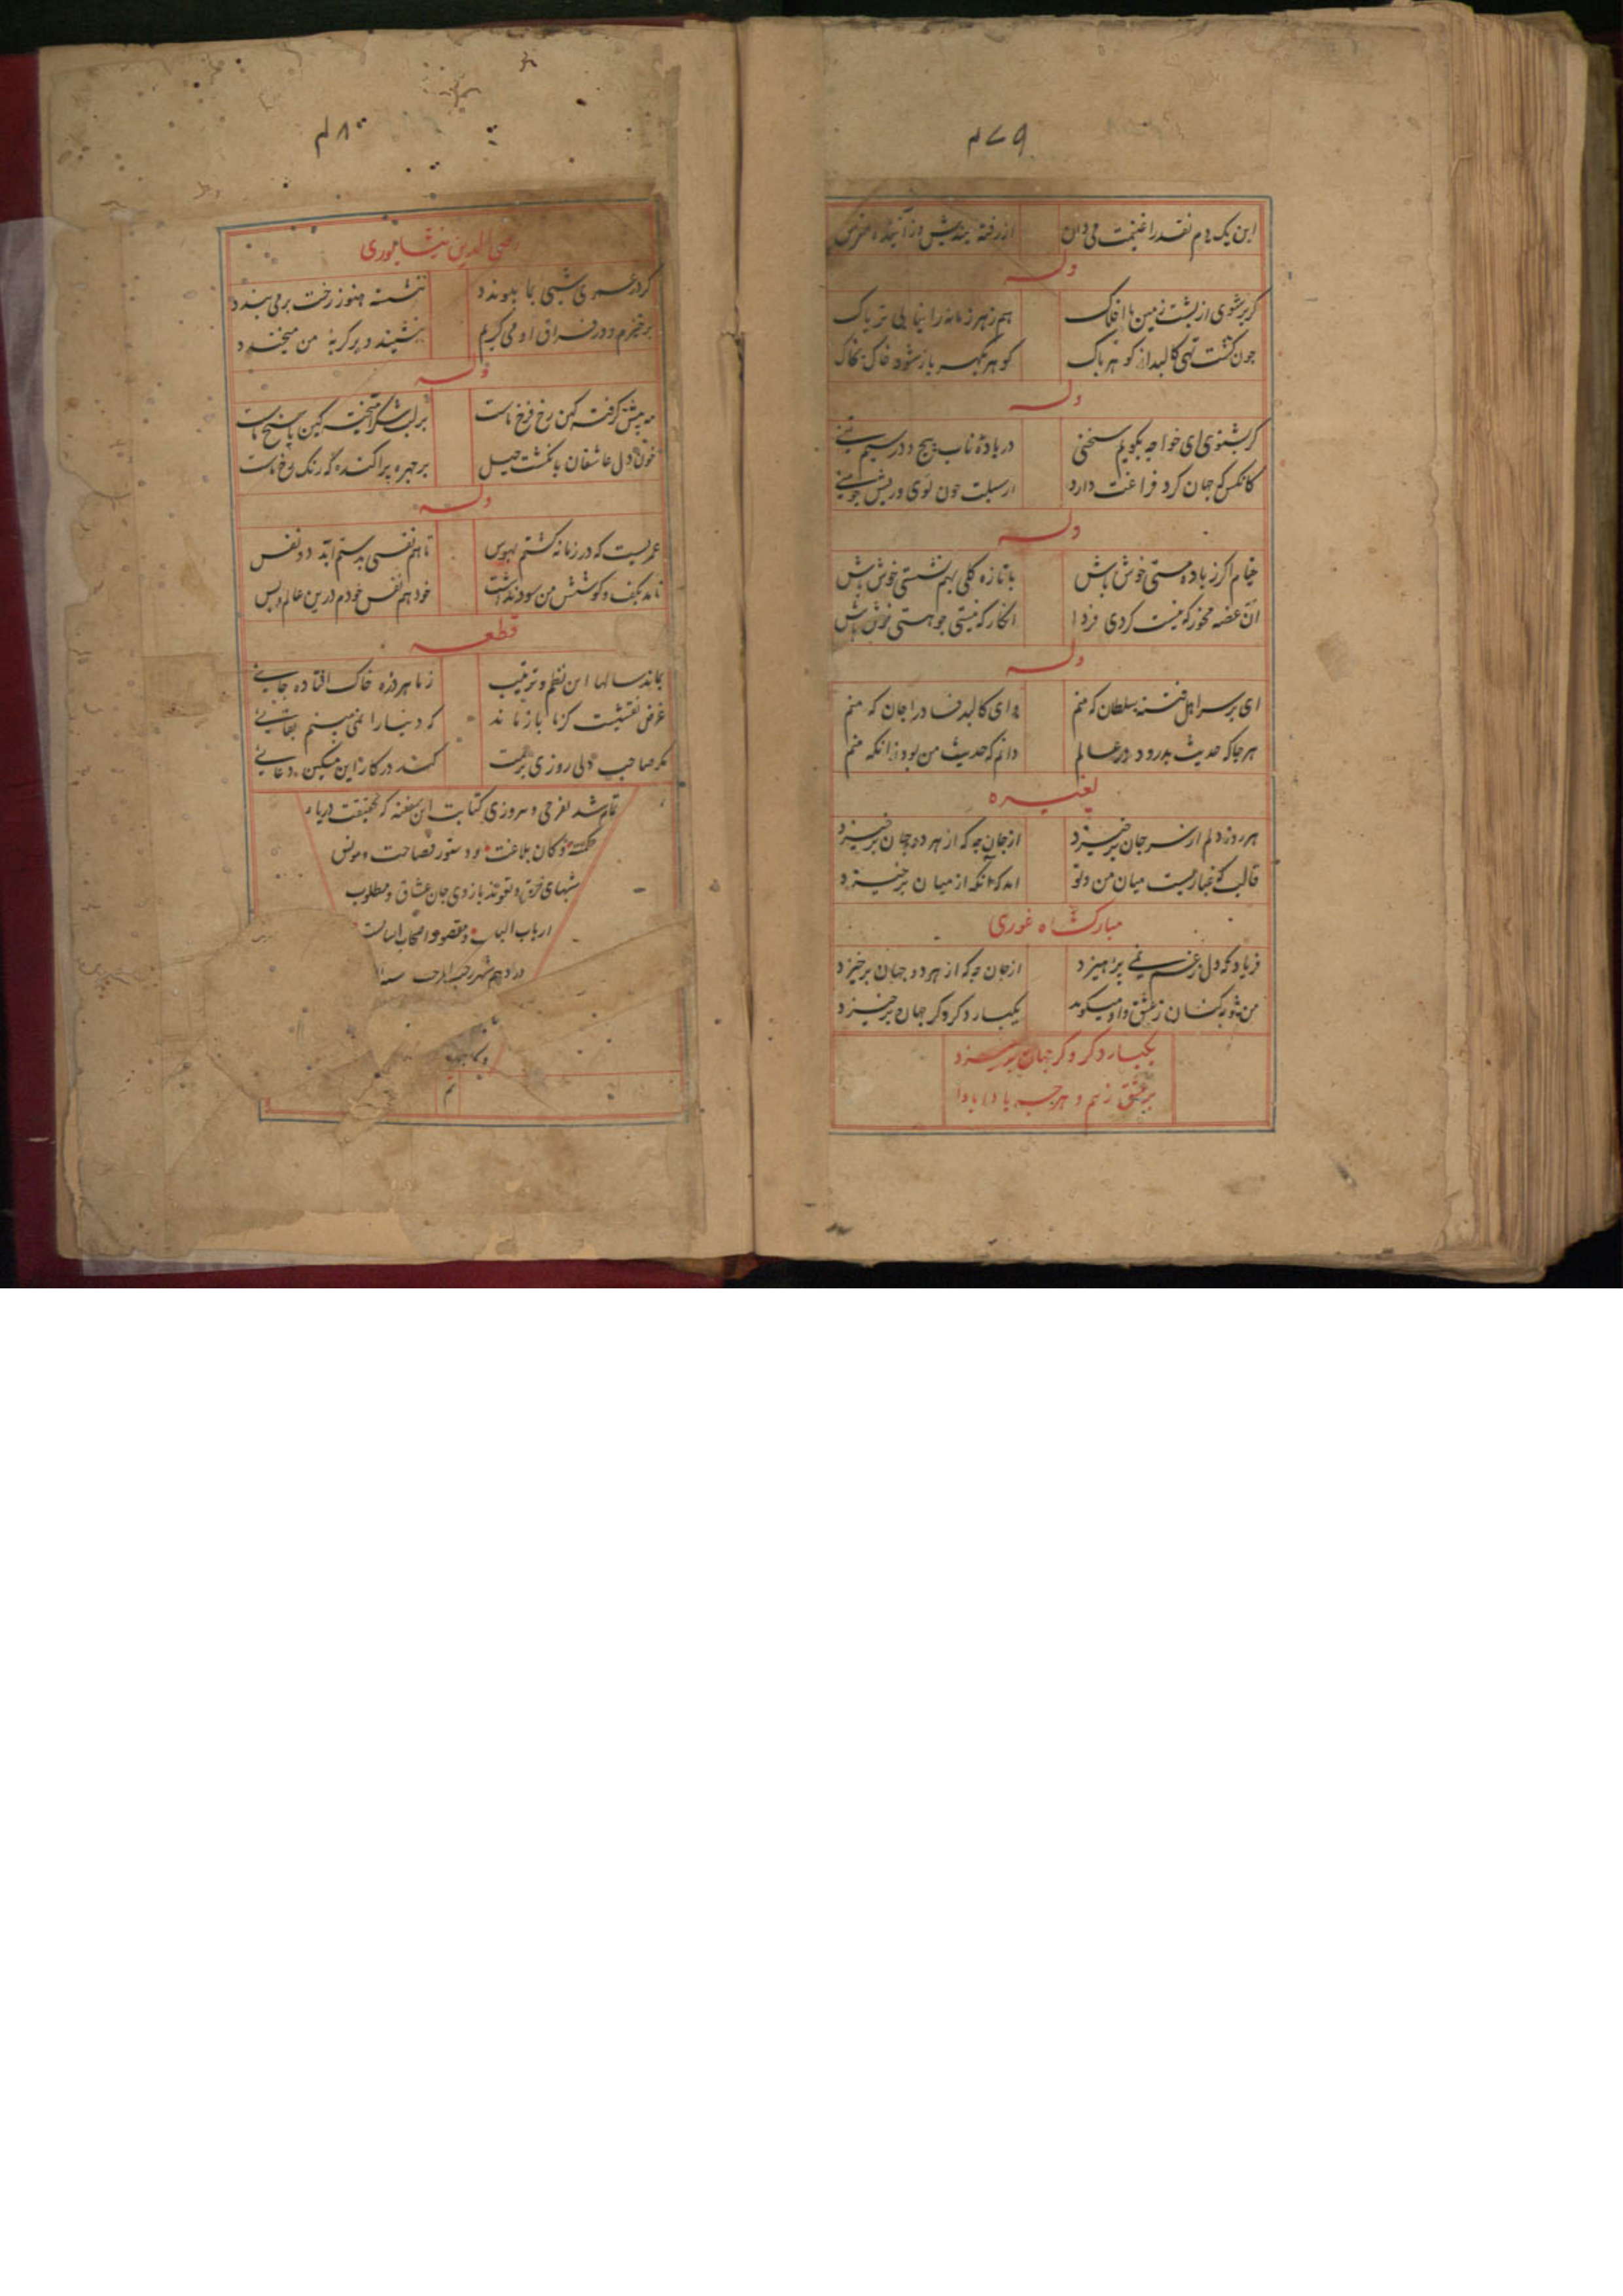 ۴۷۹
این یک دم نقد را غنیمت می دان از رفته میندیش و ز آینده مترس
وله
کر بر شوی از پشت زمین با افلاک هم زهر زمانه را نیابی تریاک
چون کشت تهی کالبد از کوهر پاک کوهر بکهر باز شود خاک بخاک
وله
کر بشنوی ای خواجه بکویم سخنی در بادهٔ ناب پیچ و در سیم تنی
کانکس که جهان کرد فراغت دارد از سبلت چون توی و ریش چو منی
وله
خیام اکر ز باده مستی خوش باش با تازه کلی بهم نشستی خوش باش
آن غصه مخور که نیست کردی فردا انکار که نیستی چو هستی خوش باش
وله
ای بر سر اهل فتنه سلطان که منم وای کالبد فساد را جان که منم
هر جا که حدیث بد رود در عالم دانم که حدیث من بود زانکه منم
لغیره
هر روز دلم از سر جان برخیزد از جان چه که از هر دو جهان برخیزد
قالب که غباریست میان من و تو آمد که آنکه از میان برخیزد
مبارکشاه غوری
فریاد که دل ز غم نمی پرهیزد از جان چه که از هر دو جهان برخیزد
من شور کنان ز عشق و او میکوید یکبار دکر و کر جهان برخیزد
یکبار دکر و کر جهان برخیزد
بر عشق زنم و هر چه بادا بادا
۴۸۰
رضی الدین نیشابوری
کر در عمری شبی بما پیوندد ننشسته هنوز رخت بر می بندد
برخیزم و در فراق او می کریم بنشیند و بر کریهٔ من میخندد
وله
مه پیش کرفته کین رخ فرخ ماست بر لب شکر آمیخت کین پاسخ ماست
خون دل عاشقان بانکشت جیل بر چهره پراکنده که رنک رخ ماست
وله
عمریست که در زمانه کشتم بهوس تا هم نفسی بدستم آید دو نفس
نامد بکف و کوشش من سود نداشت خود هم نفس خودم درین عالم و بس
قطعه
بماند سالها این نظم و ترتیب ز ما هر ذره خاک افتاده جایی
غرض نقشیست کز ما باز ماند که دنیا را نمی بینم بقایی
مکر صاحب دلی روزی برحمت کند در کار این مسکین دعایی
تمام شد بفرخی و پیروزی کتابت این سفینه که بحقیقت دریاء
حکمت و کان بلاغت و دستور فصاحت و مونس
شبهای فرقت و تعویذ بازوی جان عشاق و مطلوب
ارباب الباب و مقصود اصحاب
در دهم شهر رجب المرجب سنه
تم